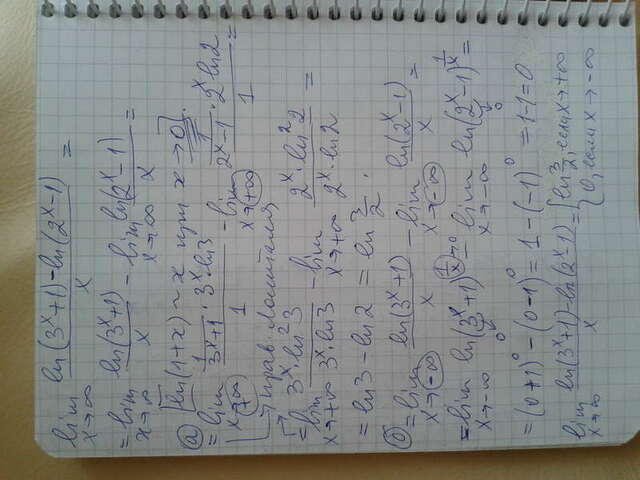 lim x→∞ (ln(3^x+1)-ln(2^x-1))/x =
= lim x→∞ ln(3^x+1)/x - lim x→∞ ln(2^x-1)/x =
[ln(1+x)~x при x→0].
а) = lim x→+∞ (1/(3^x+1) · 3^x·ln3)/1 - lim x→+∞ (1/(2^x-1) · 2^x ln2)/1 =
прав. Лопиталя
= lim x→+∞ (3^x·ln²3)/(3^x·ln3) - lim x→+∞ (2^x·ln²2)/(2^x·ln2) =
= ln3-ln2 = ln 3/2.
б) = lim x→-∞ ln(3^x+1)/x - lim x→-∞ ln(2^x-1)/x =
= lim x→-∞ ln(3^x+1)^(1/x)→0 - lim x→-∞ ln(2^x-1)^(1/x) =
= (0+1)^0 - (0-1)^0 = 1-(-1)^0 = 1-1=0
lim x→∞ (ln(3^x+1)-ln(2^x-1))/x = { ln 3/2, если x→+∞
0, если x→-∞